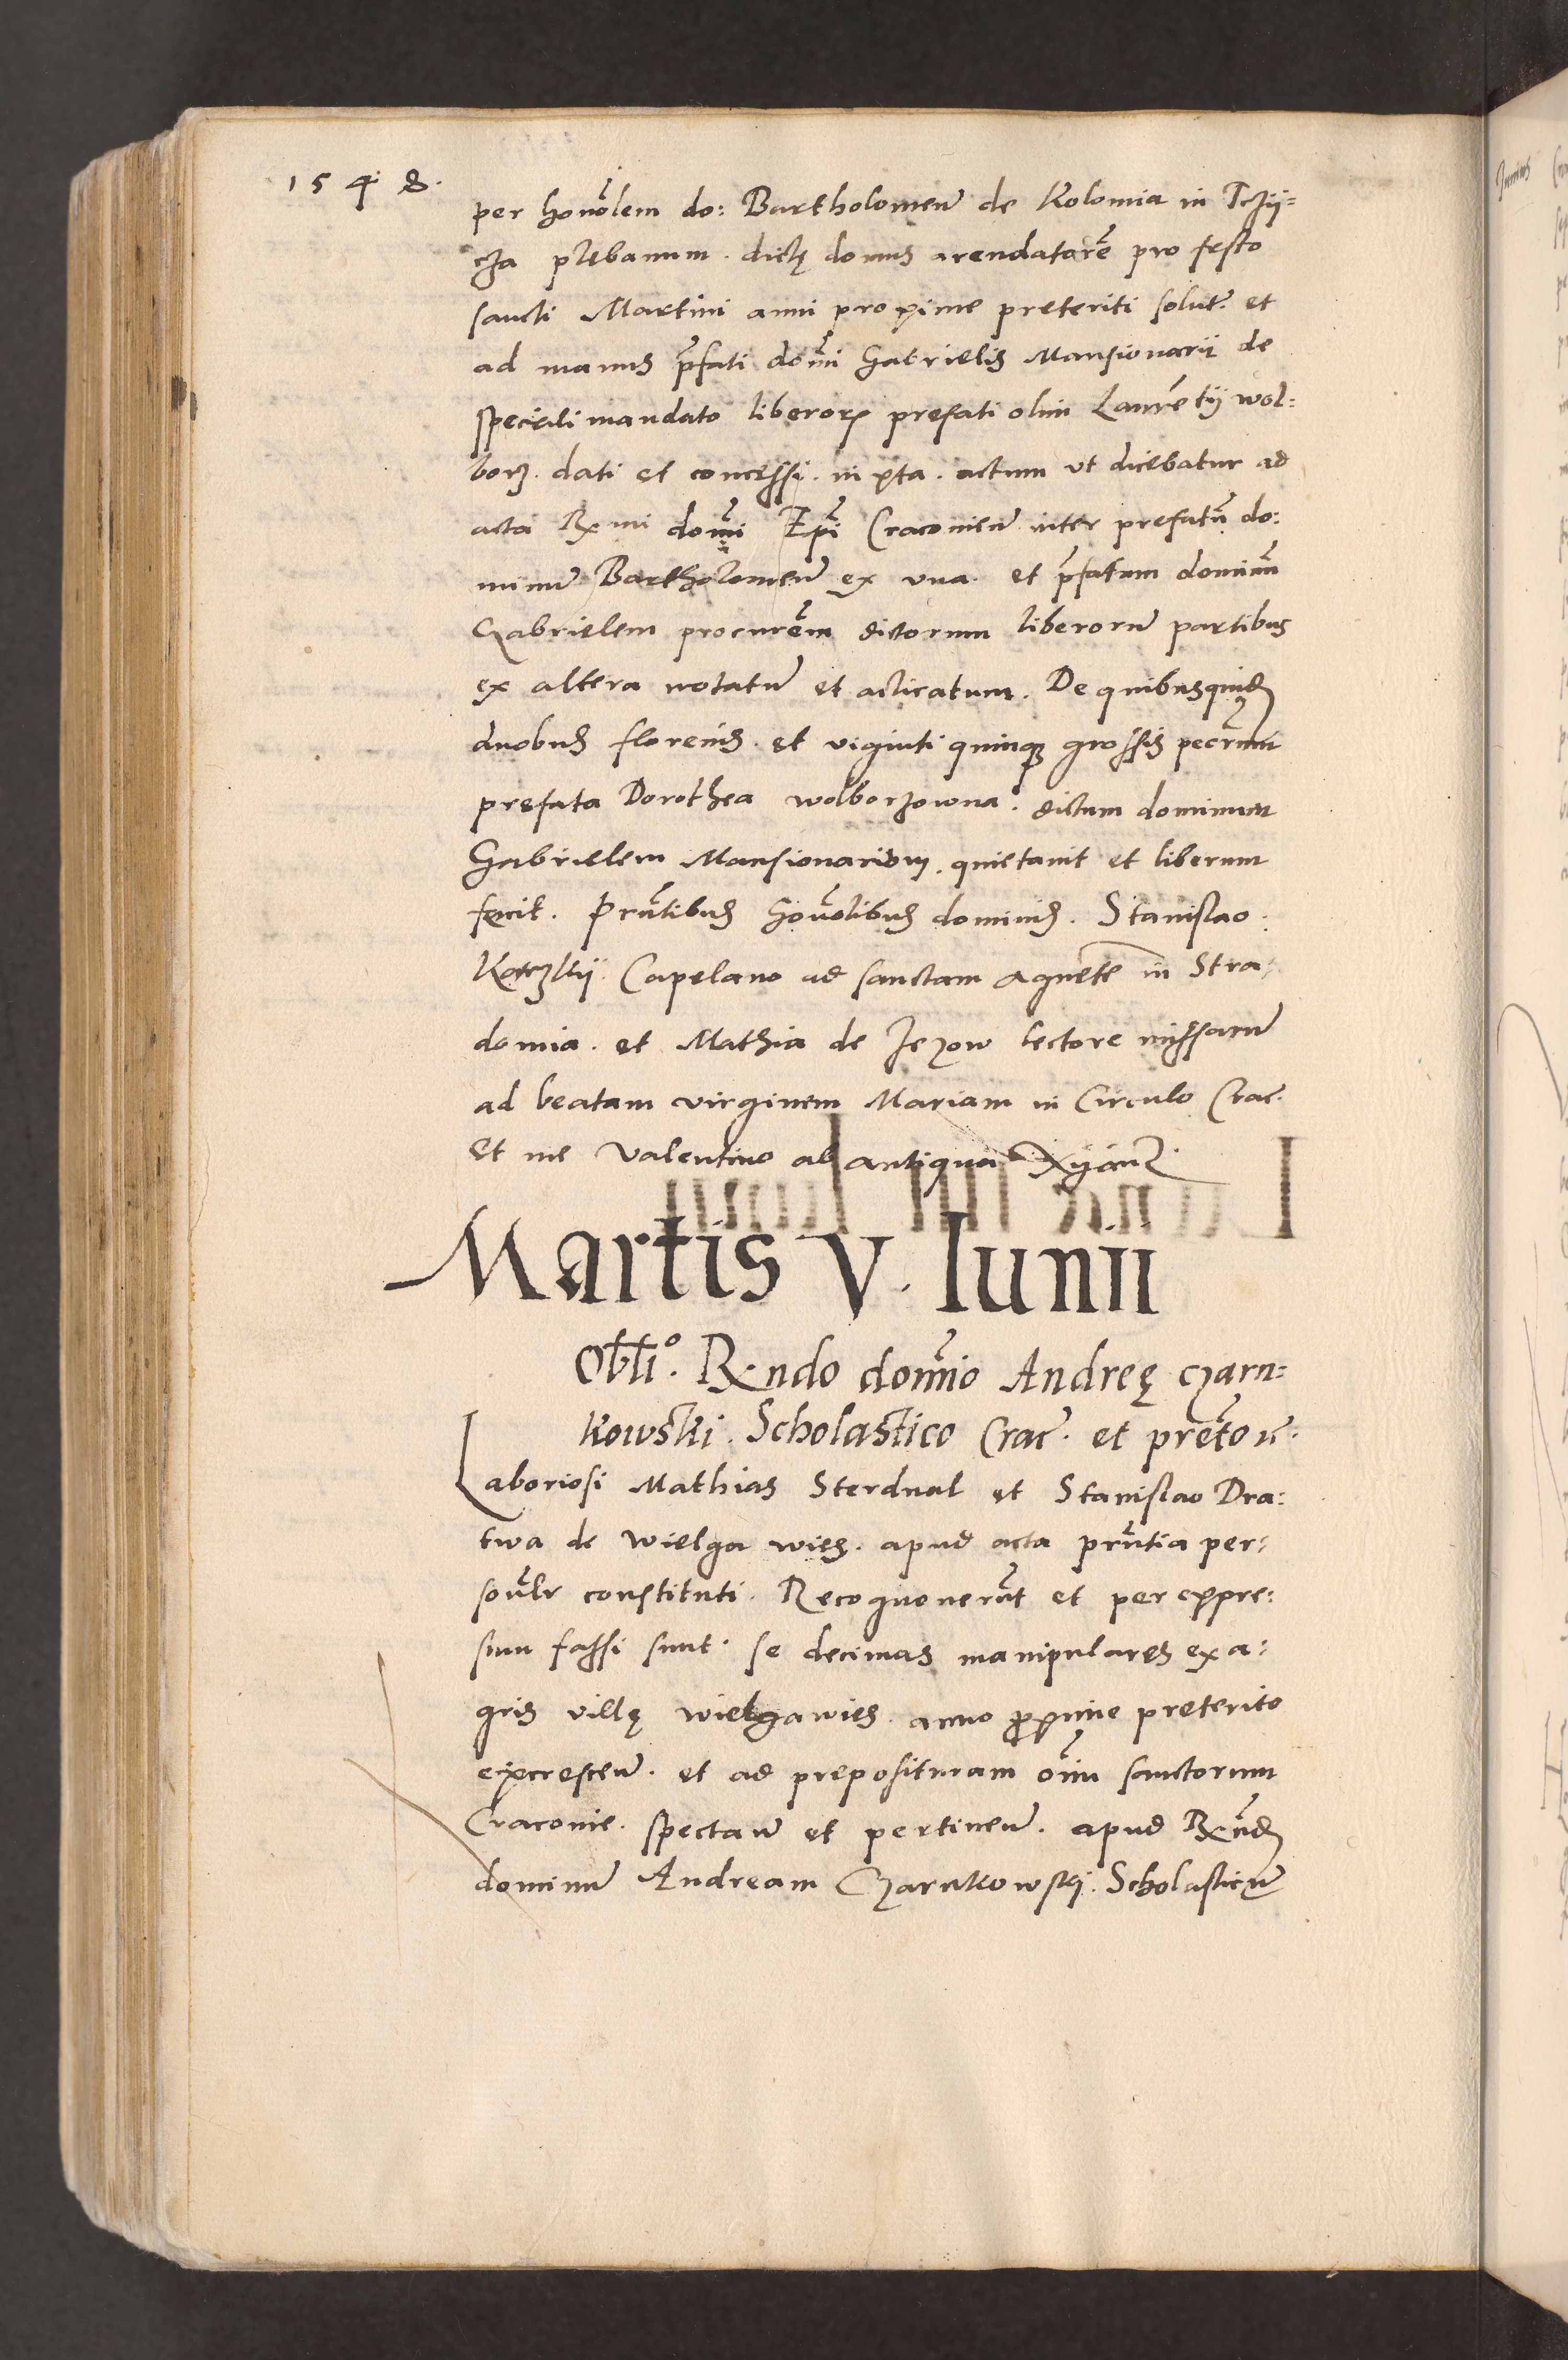 1548.
per hono͂lem do: Bartholomeu͂ de Kolomia in Tczÿ=
cza plebanum. dictę domus arendatore͂ pro festo
sancti Martini anni proxime preteriti solut. et
ad manus p͂fati domi͂ Gabrielis Mansionarÿ de
speciali mandato liberorꝝ prefati olim Laure͂tÿ wol=
borz. dati et concessi. iuxta. actum vt dicebatur ad
acta Rx mi domi͂ Epi͂ Cracovien͂ inter prefatu͂ do:
minu͂ Bartholomeu͂ ex vna. et p͂fatum dominu͂
Gabrielem procure͂m dictorum liberoru͂ partibus
ex altera notatu͂ et acticatum. De quibusquid͂
duobus florenis. et viginti quinqꝫ grossis pecu͂rum
prefata Dorothea wolborzowna. dictum dominum
Gabrielem Mansionarium. quietauit et liberum
fecit. Pru͂tibus hono͂libus dominis. Stanislao.
Kotrzkÿ. Capelano ad sanctam Agnete͂ in Stra=
domia. et Mathia de Jezow lectore missaru͂
ad beatam virginem Mariam in Circulo Crac.
et me Valentino ab antiqua Rzÿan͂.
Martis V. Iunii
Obli͂o. Rx ndo domi͂o Andreę czarn=
kowski. Scholastico Crac͂. et preto͂ru͂.
Laboriosi Mathias Sterdnal et Stanislao Dra:
twa de wielga wies. apud acta pru͂tia per:
sona͂lr constituti. Recognoueru͂t et per expre:
sum fassi sunt. se decimas manipulares ex a:
gris villę wielgawies. anno ꝓxime preterito
excrescen͂. et ad preposituram o͂im sanctorum
Cracouie. spectan͂ et pertinen͂. apud Rx nd͂
dominu͂ Andream Czarnkowski. Scholasticu͂